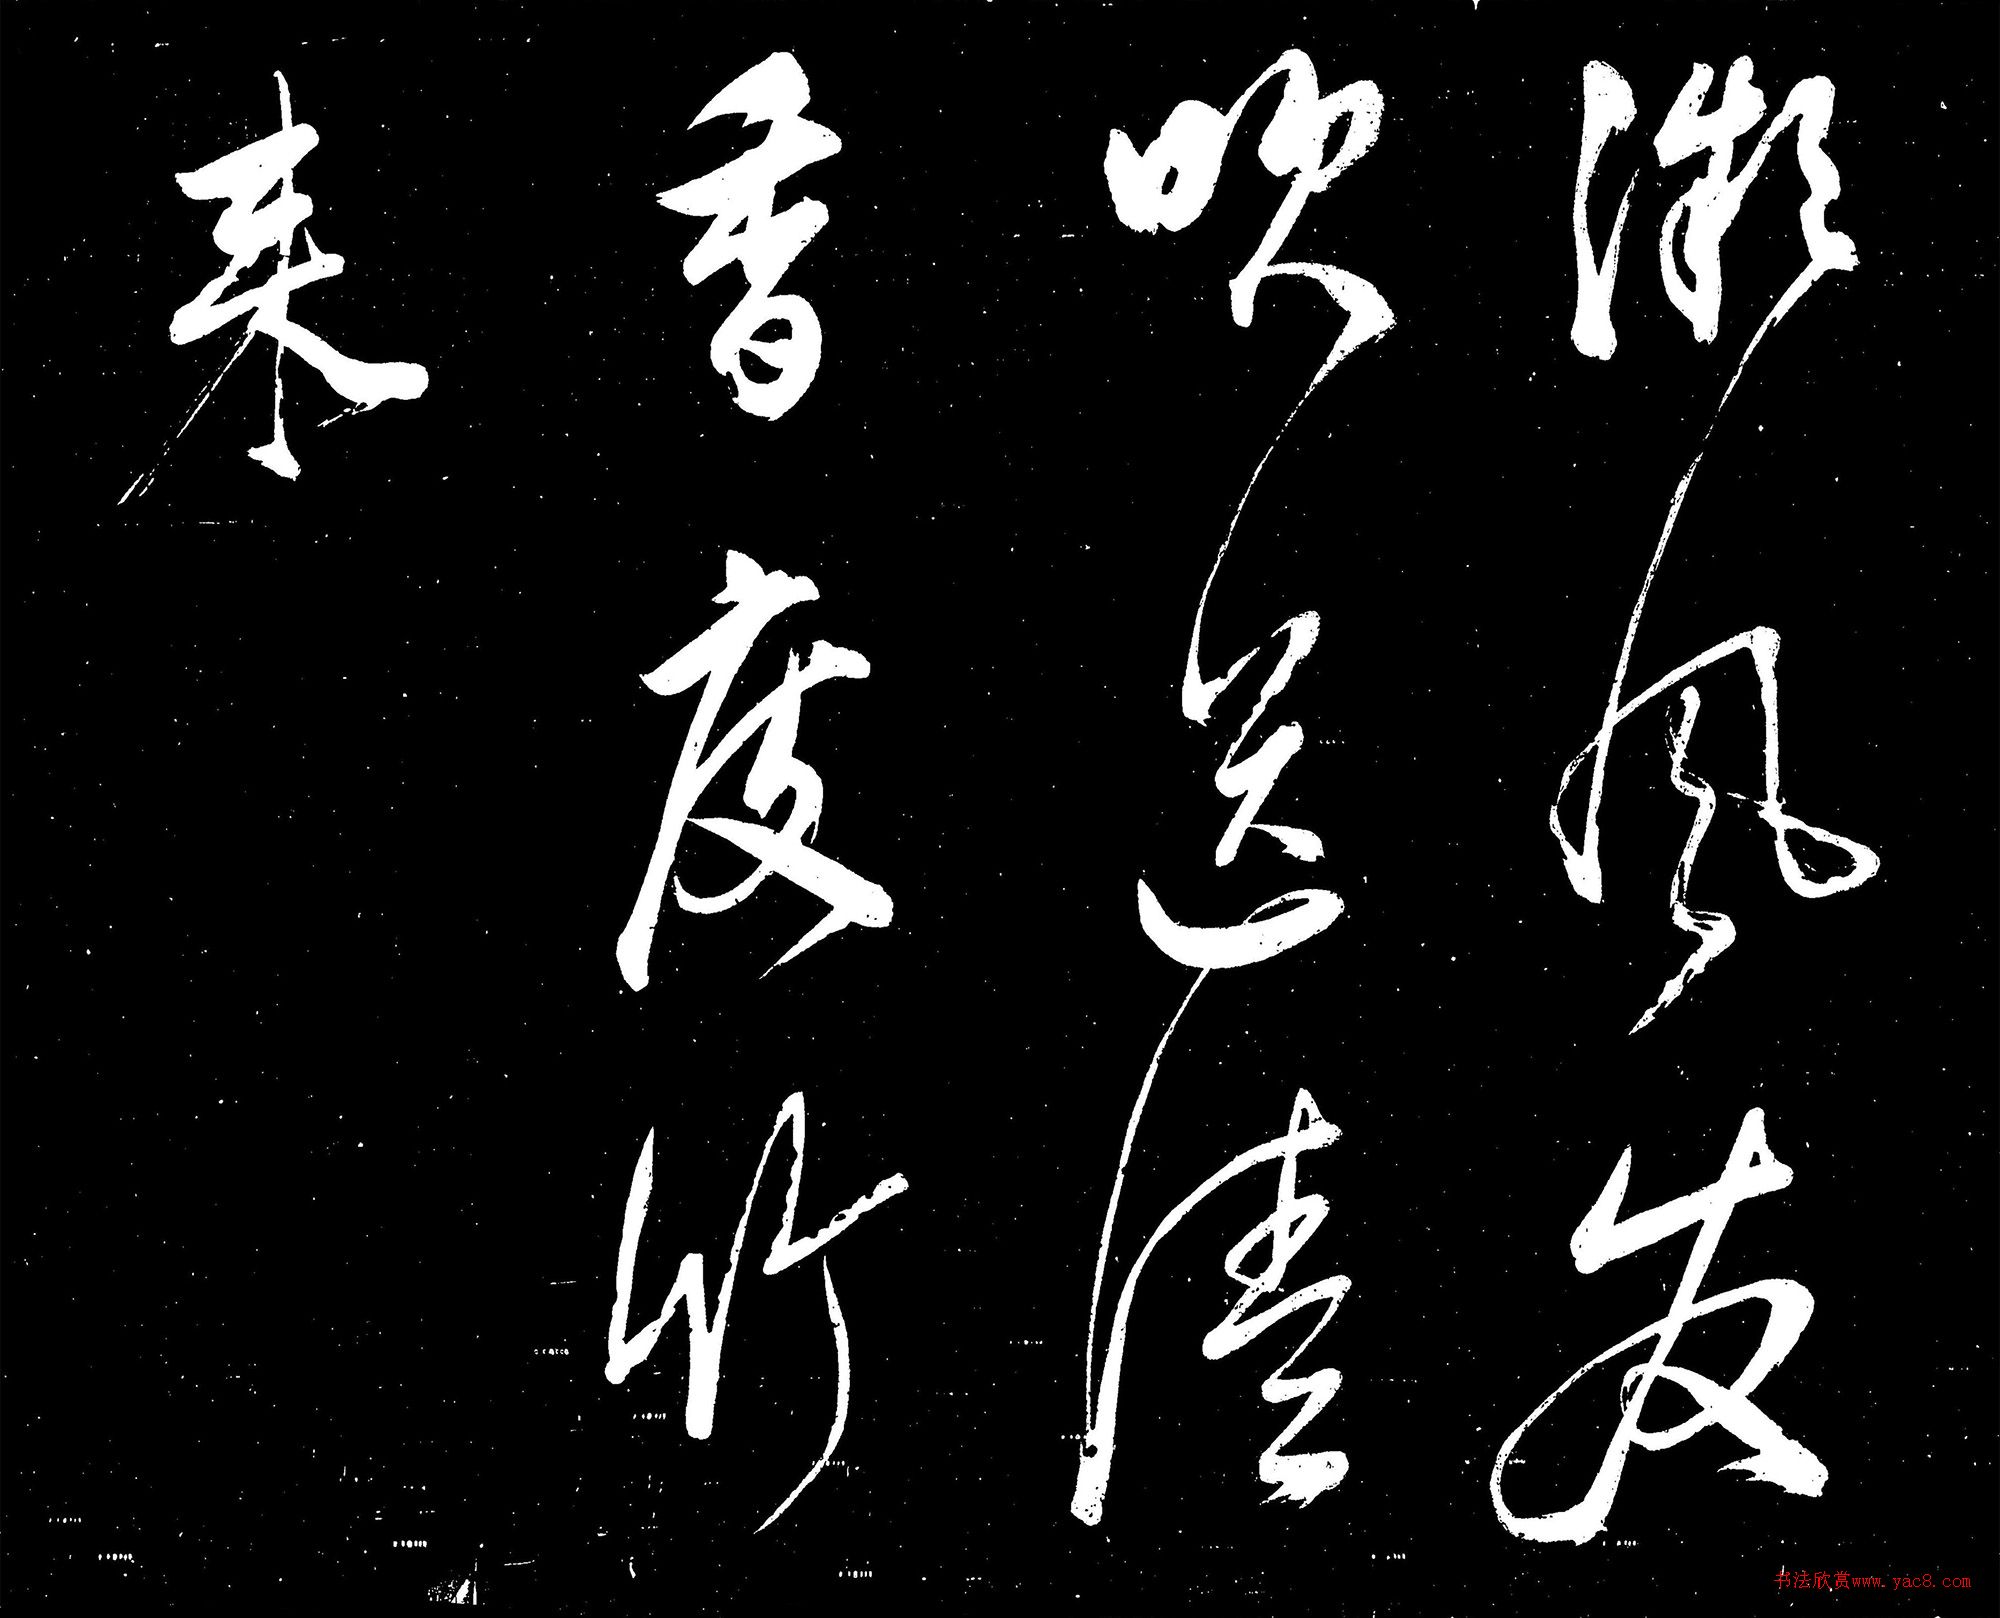 微風發
吹送清
香度竹
來
书法欣赏www.yac8.com